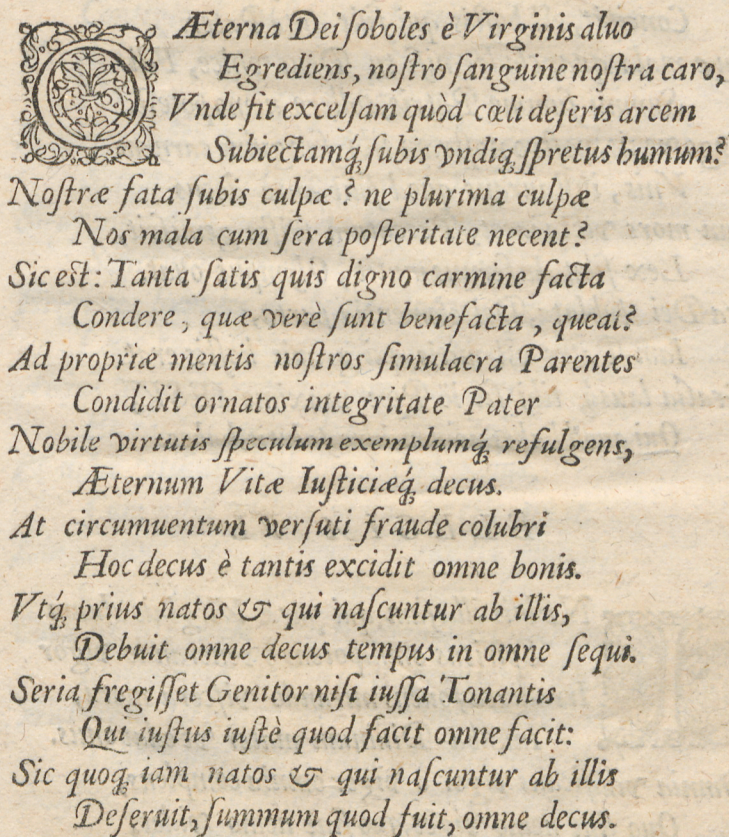 O Æterna Dei ſoboles è Virginis aluo
Egrediens, noſtro ſanguine noſtra caro,
Vnde fit excelſam quòd cœli deſeris arcem
Subiectamq́; ſubis vndiq; ſpretus humum?
Noſtræ fata ſubis culpæ? ne plurima culpæ
Nos mala cum ſera poſteritate necent?
Sic eſt: Tanta ſatis quis digno carmine facta
Condere, quæ verè ſunt benefacta, queat?
Ad propriæ mentis noſtros ſimulacra Parentes
Condidit ornatos integritate Pater
Nobile virtutis ſpeculum exemplumq́; refulgens,
Æternum Vitæ Iuſticiæq́; decus.
At circumuentum verſuti fraude colubri
Hoc decus è tantis excidit omne bonis.
Vtq́; prius natos & qui naſcuntur ab illis,
Debuit omne decus tempus in omne ſequi.
Seria fregiſſet Genitor niſi iuſſa Tonantis
Qui iuſtus iuſtè quod facit omne facit:
Sic quoq; iam natos & qui naſcuntur ab illis
Deſeruit, ſummum quod fuit, omne decus.